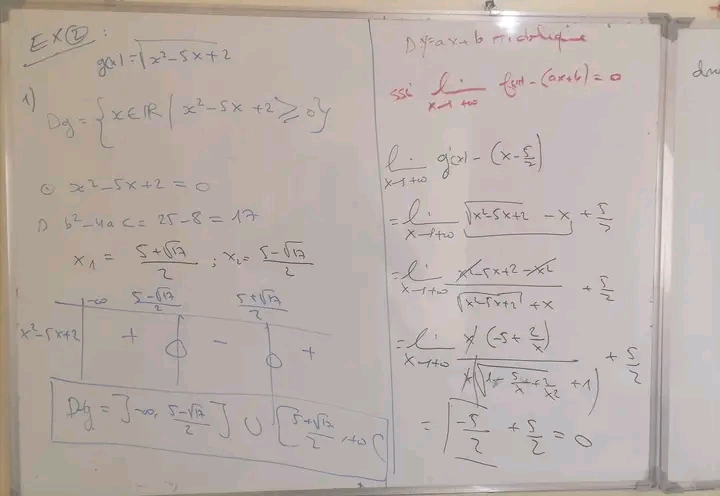 EX②:
g(x)=√(x²-5x+2)
1)
Dg = {x∈ℝ / x²-5x+2 ≥ 0}
x²-5x+2=0
b²-4ac = 25-8 = 17
x₁ = (5+√17)/2 ; x₂ = (5-√17)/2
-∞ (5-√17)/2 (5+√17)/2
x²-5x+2 + 0 - 0 +
Dg = ]-∞, (5-√17)/2] ∪ [(5+√17)/2, +∞[
D y=ax+b
ssi lim x→+∞ f(x)-(ax+b)=0
lim x→+∞ g(x) - (x-5/2)
= lim x→+∞ √(x²-5x+2) - x + 5/2
= lim x→+∞ (x²-5x+2-x²)/(√(x²-5x+2) + x) + 5/2
= lim x→+∞ x(-5+2/x)/(x(√(1-5/x+2/x²) + 1)) + 5/2
= -5/2 + 5/2 = 0